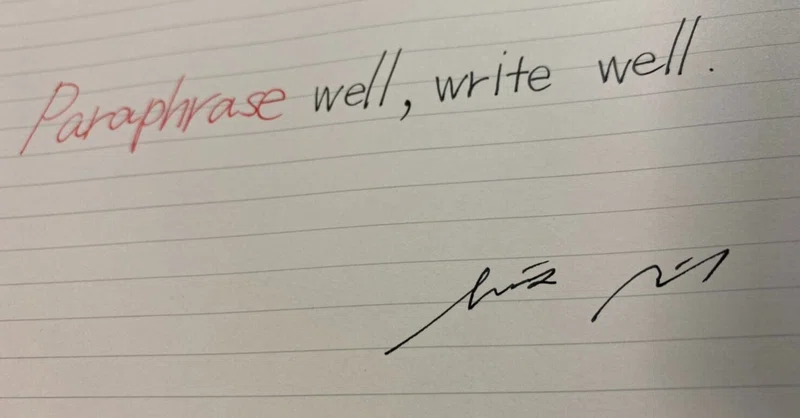 Paraphrase well, write well.